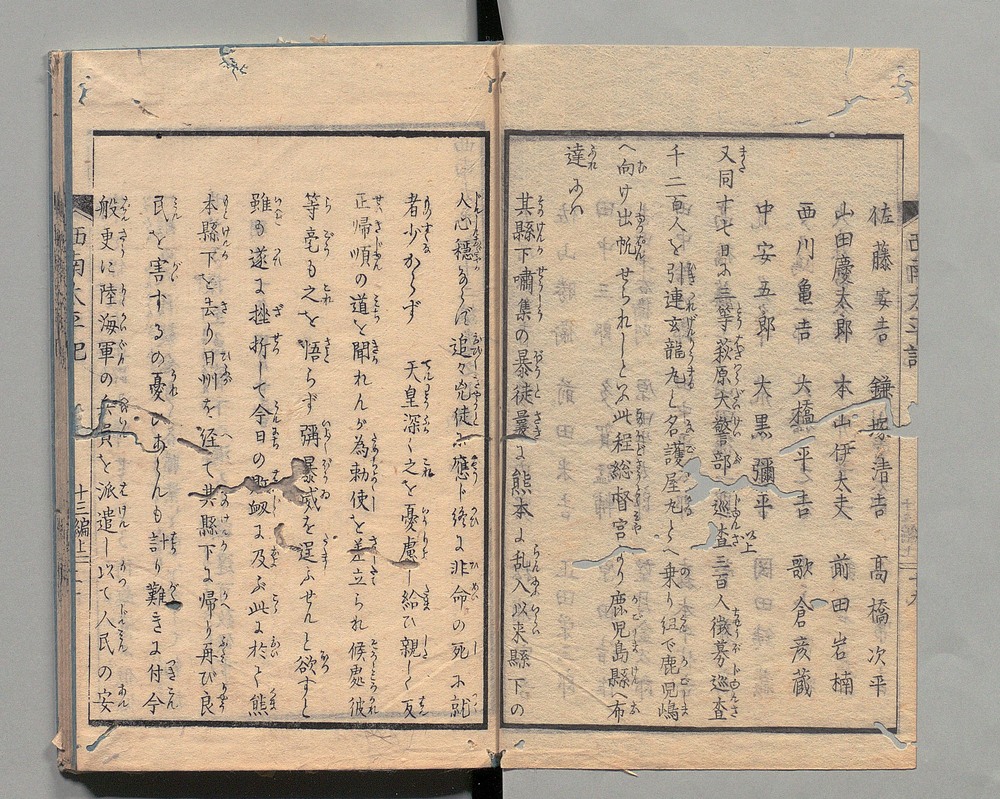 佐藤安吉　鎌塚清吉　高橋次平
山田慶太郎　本山伊大夫　前田岩楠
西川亀吉　大橋平吉　歌倉彦蔵
中安五郎　大黒彌平　以上
又同十七日ニ三等萩原大警部巡査三百人徴募巡査
千二百人を引連玄龍丸と名護屋丸とへ乗り組で鹿児嶋
へ向け出帆せられしといふ此程総督宮より鹿児島縣へ布
達
其縣下嘯集の暴徒曩に熊本に乱入以来縣下の
人心穏ならず追々兇徒に應ト終に非命の死に就
者少からず　天皇深く之を憂慮し給ひ親しく反
正帰順の道を聞れんが為勅使を差立られ候處彼
等毫も之を悟らず彌暴威を逞ふせんと欲すと
雖も遂に挫折して今日の敗衂に及ぶ此に於て熊
本縣下を去り日州を経て其縣下に帰り再び良
民を害するの憂ひあらんも計り難きに付今
般更に陸海軍の兵員を派遣し以て人民の安
西南太平記
十三編上